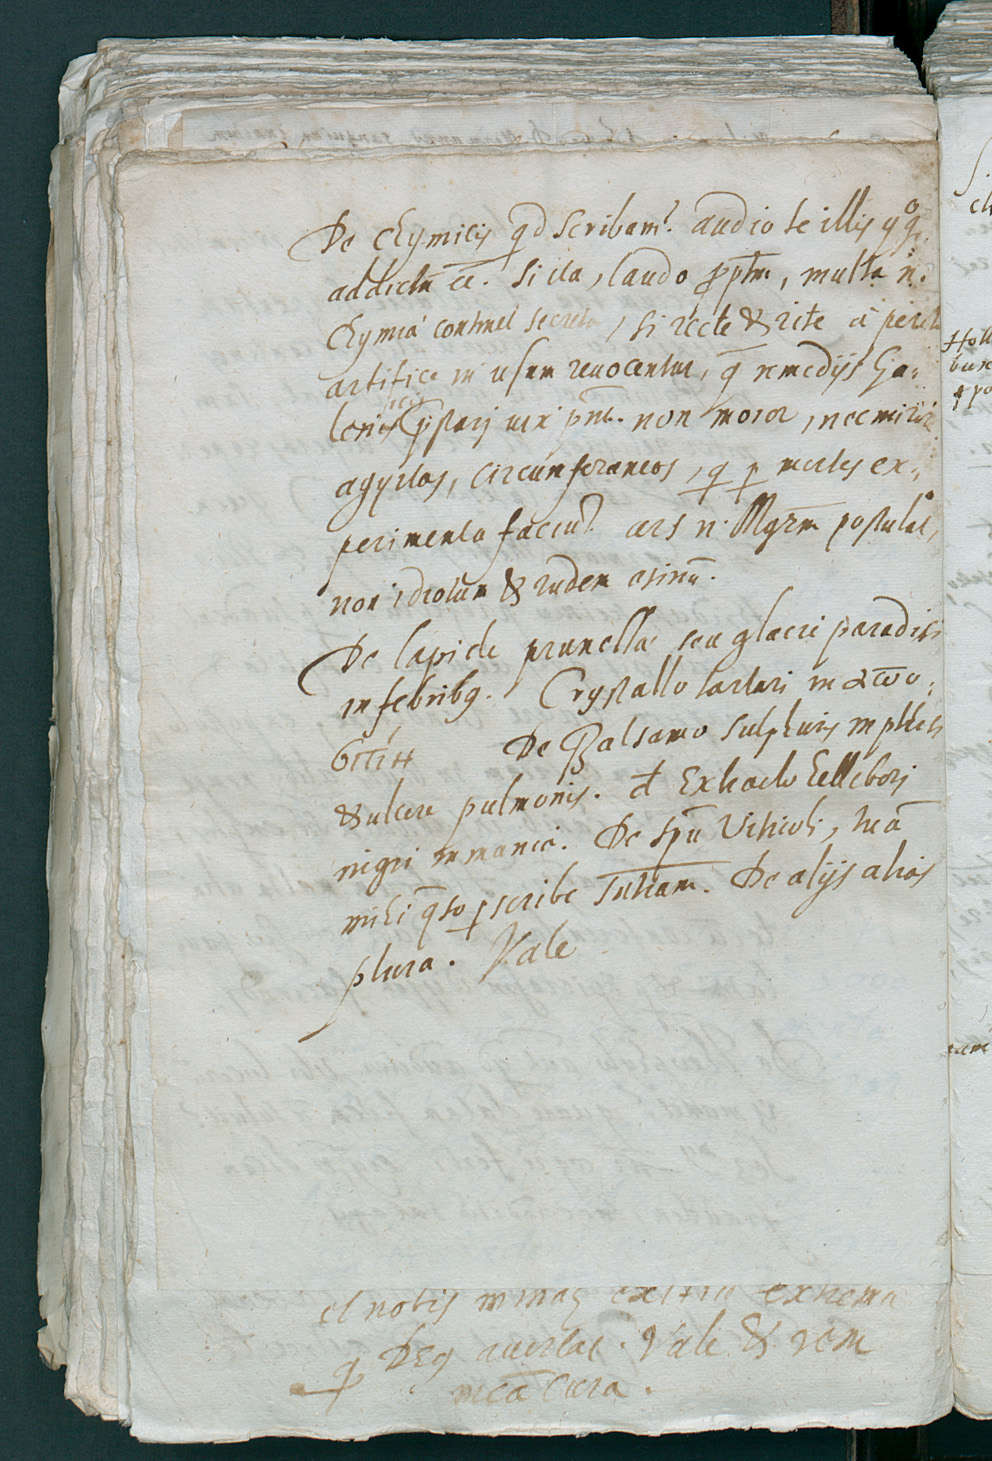 De Chymicis qd scribam? audio te illis qq,
addictũ ẽẽ. Si ita, laudo pptm, multa n.
Chymia continet secreta, si recte & rite à perito
artifice in usum revocentur, q remedijs Ga-
lenicis
non moror, nec miror
agyrtas, circumforaneos, q p mortes ex-
perimenta faciũt. ars n. Mgrm postulat,
non idiotam & rudem asinũ.
De lapide prunellæ seu glacie paradisi
in febribq. Crystallo tartari in
De Balsamo sulphuris in phthisi
& ulcere pulmonis. d Extracto hellebori
nigri in mania. De spũ Vitrioli, tuã
mihi q̃so pscribe sntiam. De alijs aliàs
plura. Vale
et nobis minaq exitia extrema
q Deq avertat. Vale & rem
meã cura.